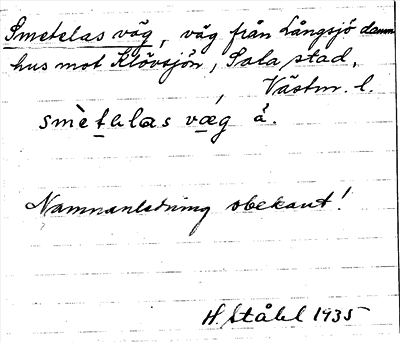 Smetelas väg, väg från Långsjö damm
hus mot Klövsjön, Sala stad,
Västm. l.
smètelas væg å.
Namnanledning obekant!
H. Ståhl 1935